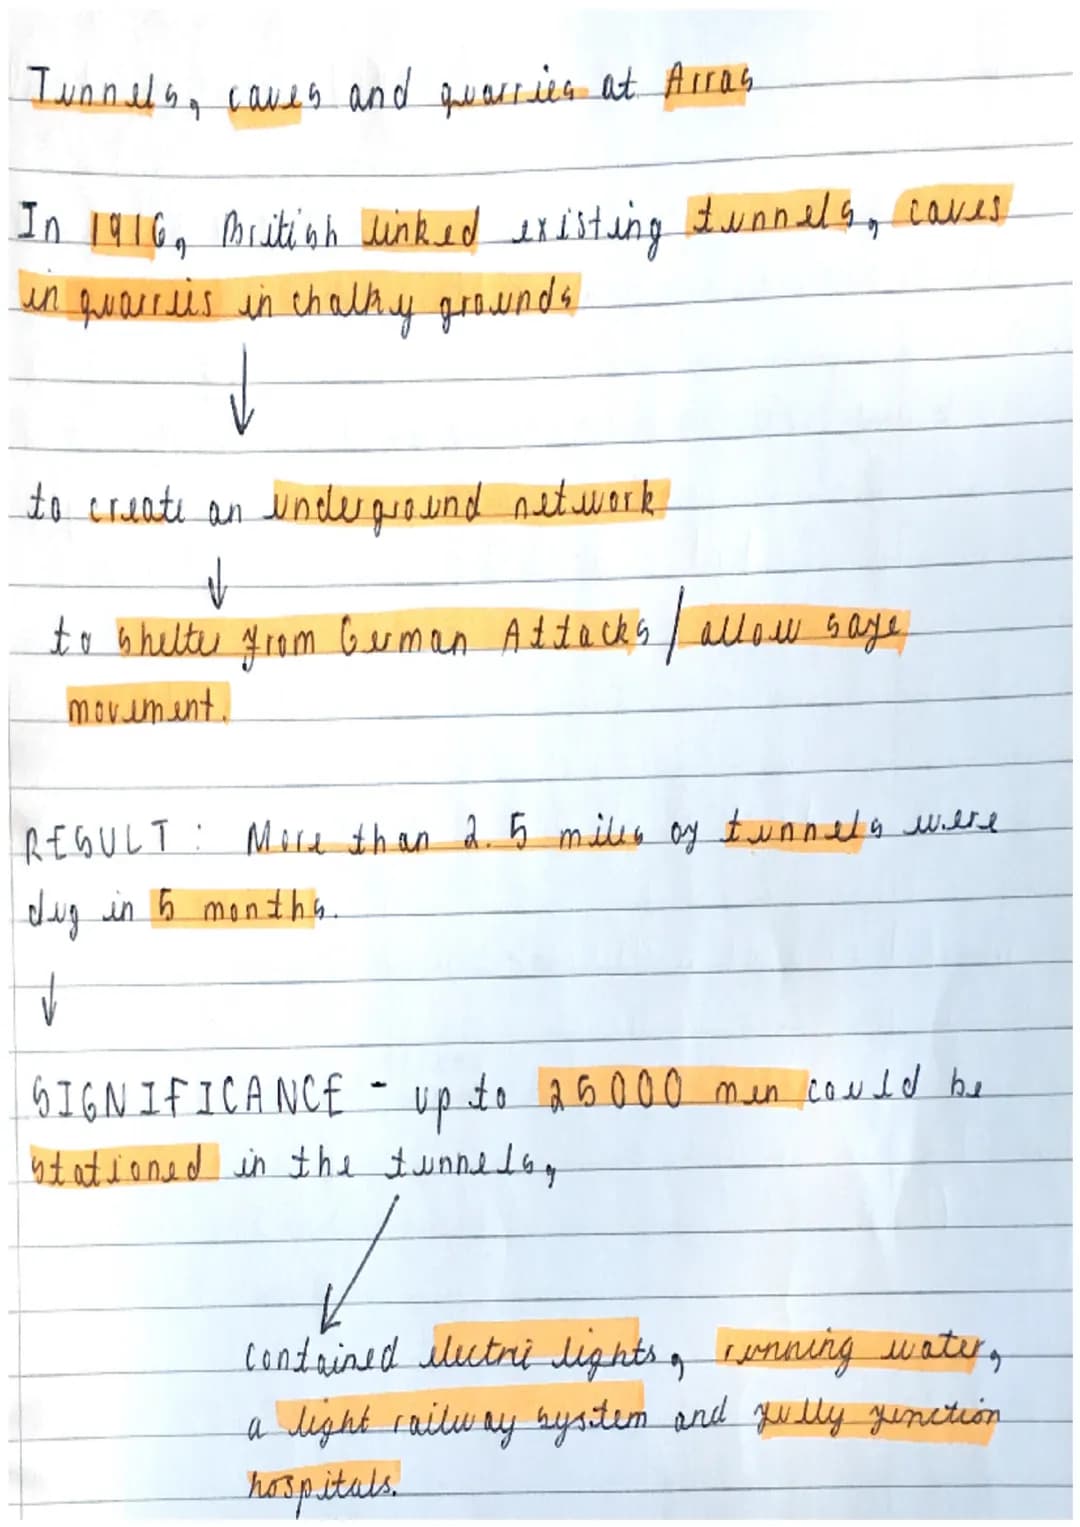 Tunnels, caves and quarries at Arras
In 1916, British linked existing tunnels, caves
in quarries in chalky grounds
to create an underground network
to shelter from German Attacks / allow safe
movement.
RESULT: More than 2.5 miles of tunnels were
dug in 5 months.
SIGNIFICANCE - up to 25000 men could be
stationed in the tunnels,
contained electric lights, running water,
a light railway system and fully function
hospitals.